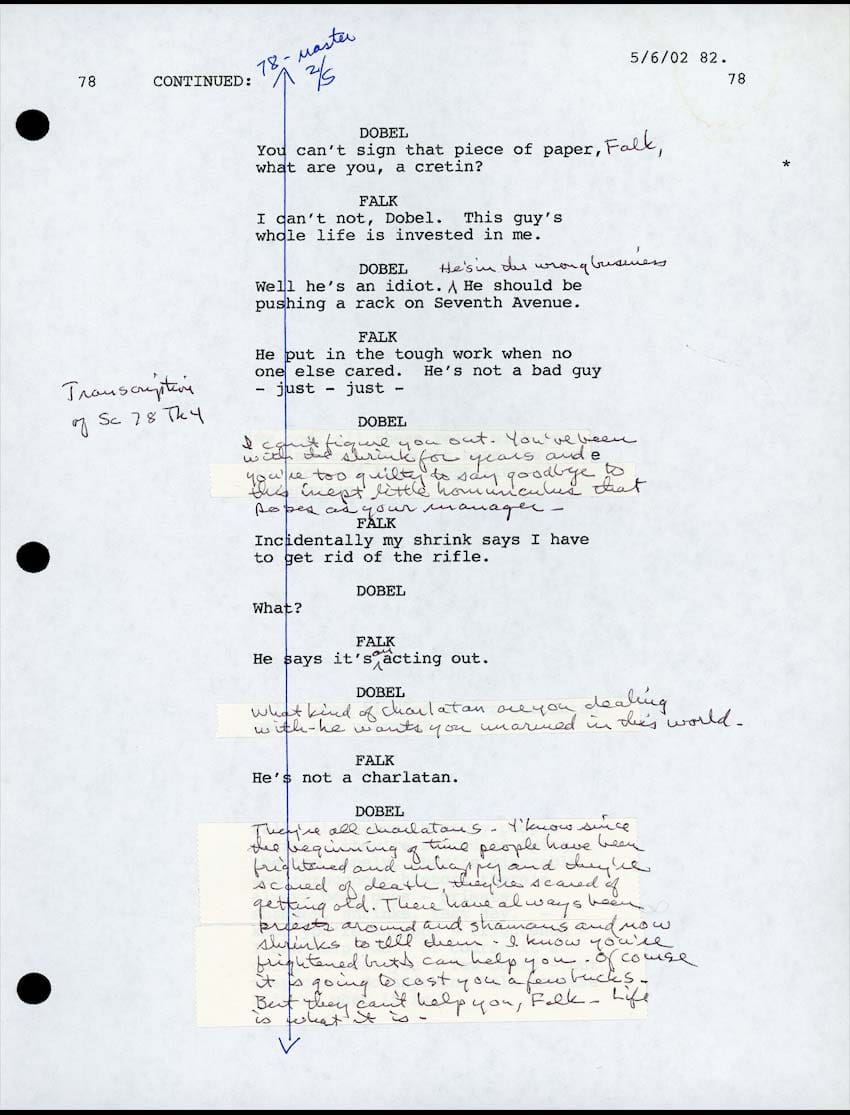 78 - master
2/5
5/6/02 82.
78 CONTINUED: 78
DOBEL
You can't sign that piece of paper, Falk,
what are you, a cretin? *
FALK
I can't not, Dobel. This guy's
whole life is invested in me.
DOBEL
He's in the wrong business
Well he's an idiot. ^ He should be
pushing a rack on Seventh Avenue.
FALK
He put in the tough work when no
one else cared. He's not a bad guy
- just - just -
Transcription
of Sc 78 Tk 4
DOBEL
I can't figure you out. You've been
with the shrink for years and e
you're too guilty to say goodbye to
this inept little homunculus that
poses as your manager -
FALK
Incidentally my shrink says I have
to get rid of the rifle.
DOBEL
What?
FALK
He says it's an acting out.
DOBEL
What kind of charlatan are you dealing
with - he wants you unarmed in this world -
FALK
He's not a charlatan.
DOBEL
They're all charlatans - Y'know since
the beginning of time people have been
frightened and unhappy and they're
scared of death, they're scared of
getting old. There have always been
priests around and shamans and now
shrinks to tell them - I know you're
frightened but I can help you - Of course
it is going to cost you a few bucks -
But they can't help you, Falk - Life
is what it is -